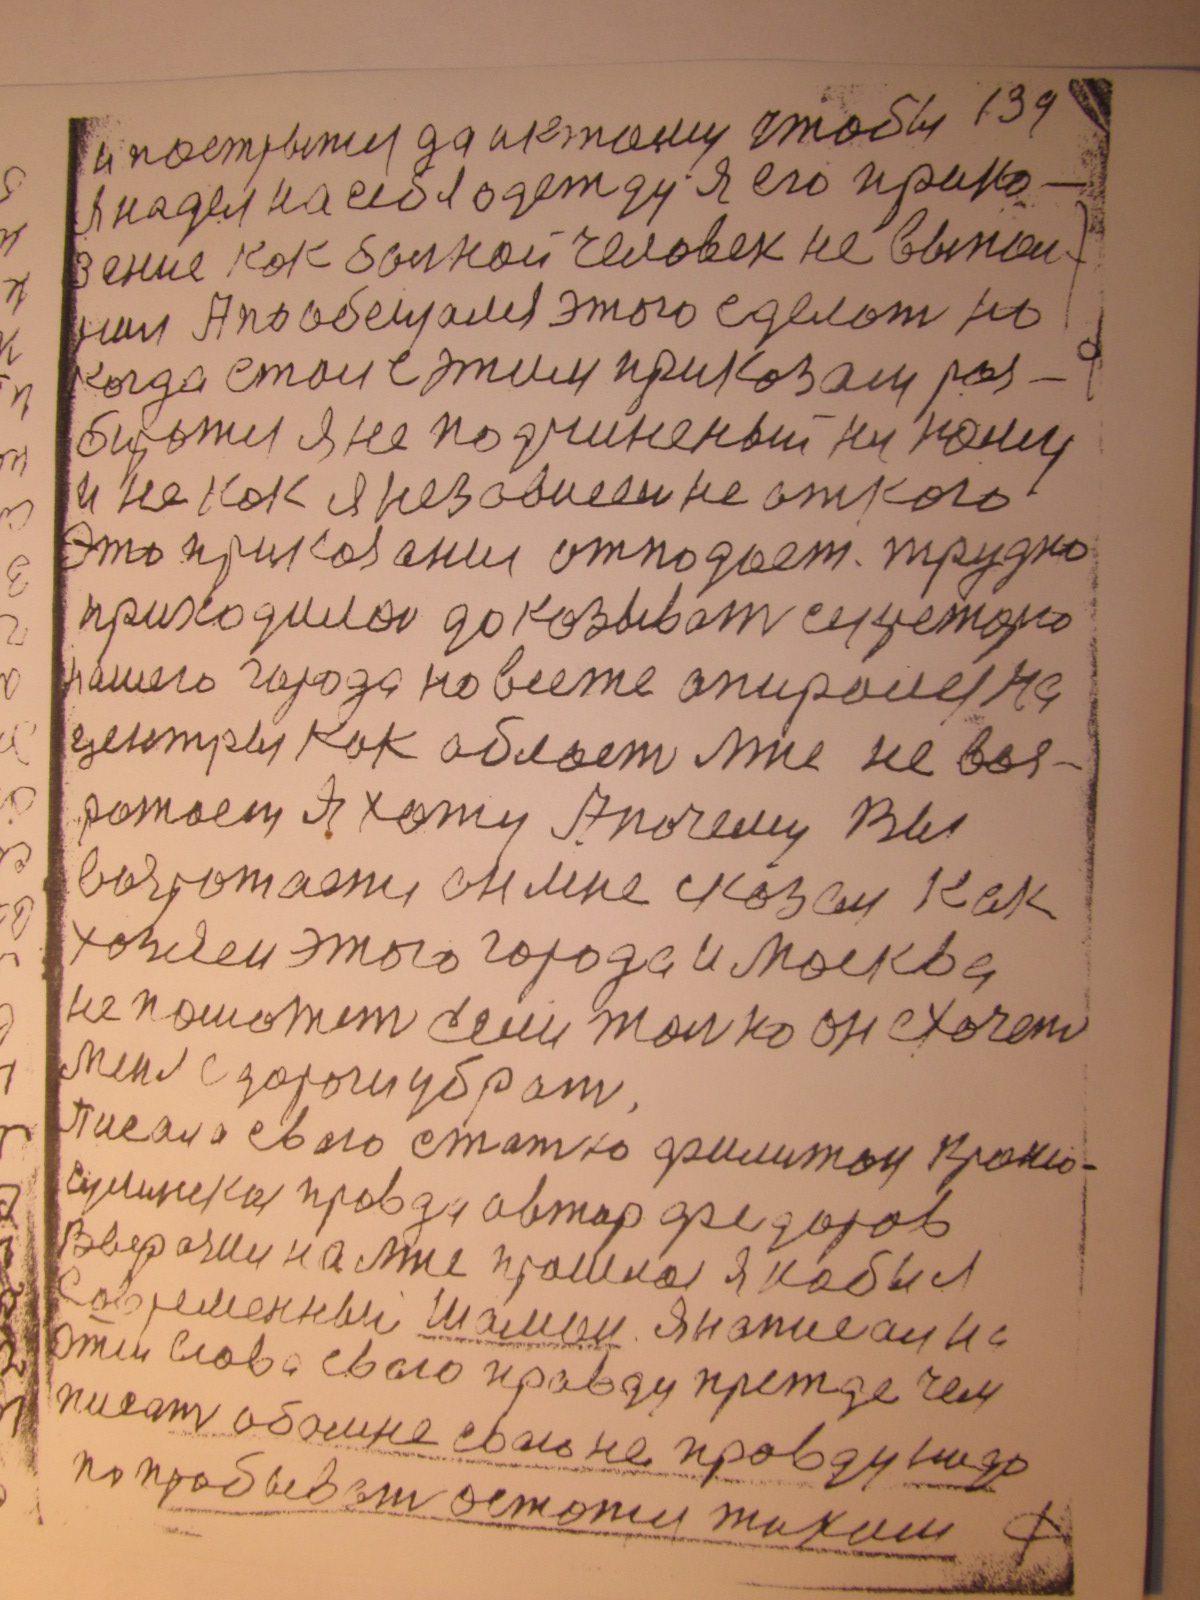 139
и постричи да и ктому чтобы
я надел на себя одежду я его прика-
зение как болной человек не выпол-
нил Я пообещался этого сделат но
когда стои с этим приказам раз-
биратся я не подчиненый ни кому
и не как я независем не от кого
Это приказания отподает. трудно
приходилос доказыват секретарю
нашего города но все же опиралися на
центры как област мне не воз-
ротжает Я хожу А почему Вы
возротжаети он мне сказал как
хозяеин этого города и Москва
не поможет если толко он схочет
меня с дороги убрат,
Писала сваго статю филитон Красно-
сулинская правда автор Федоров
Вверочии на мне прошлоя якобы я
Современный Шаман. Я написал на
эти слова сваю правду прежде чем
писат обо мне сваю не правду надо
попробыват остатся таким